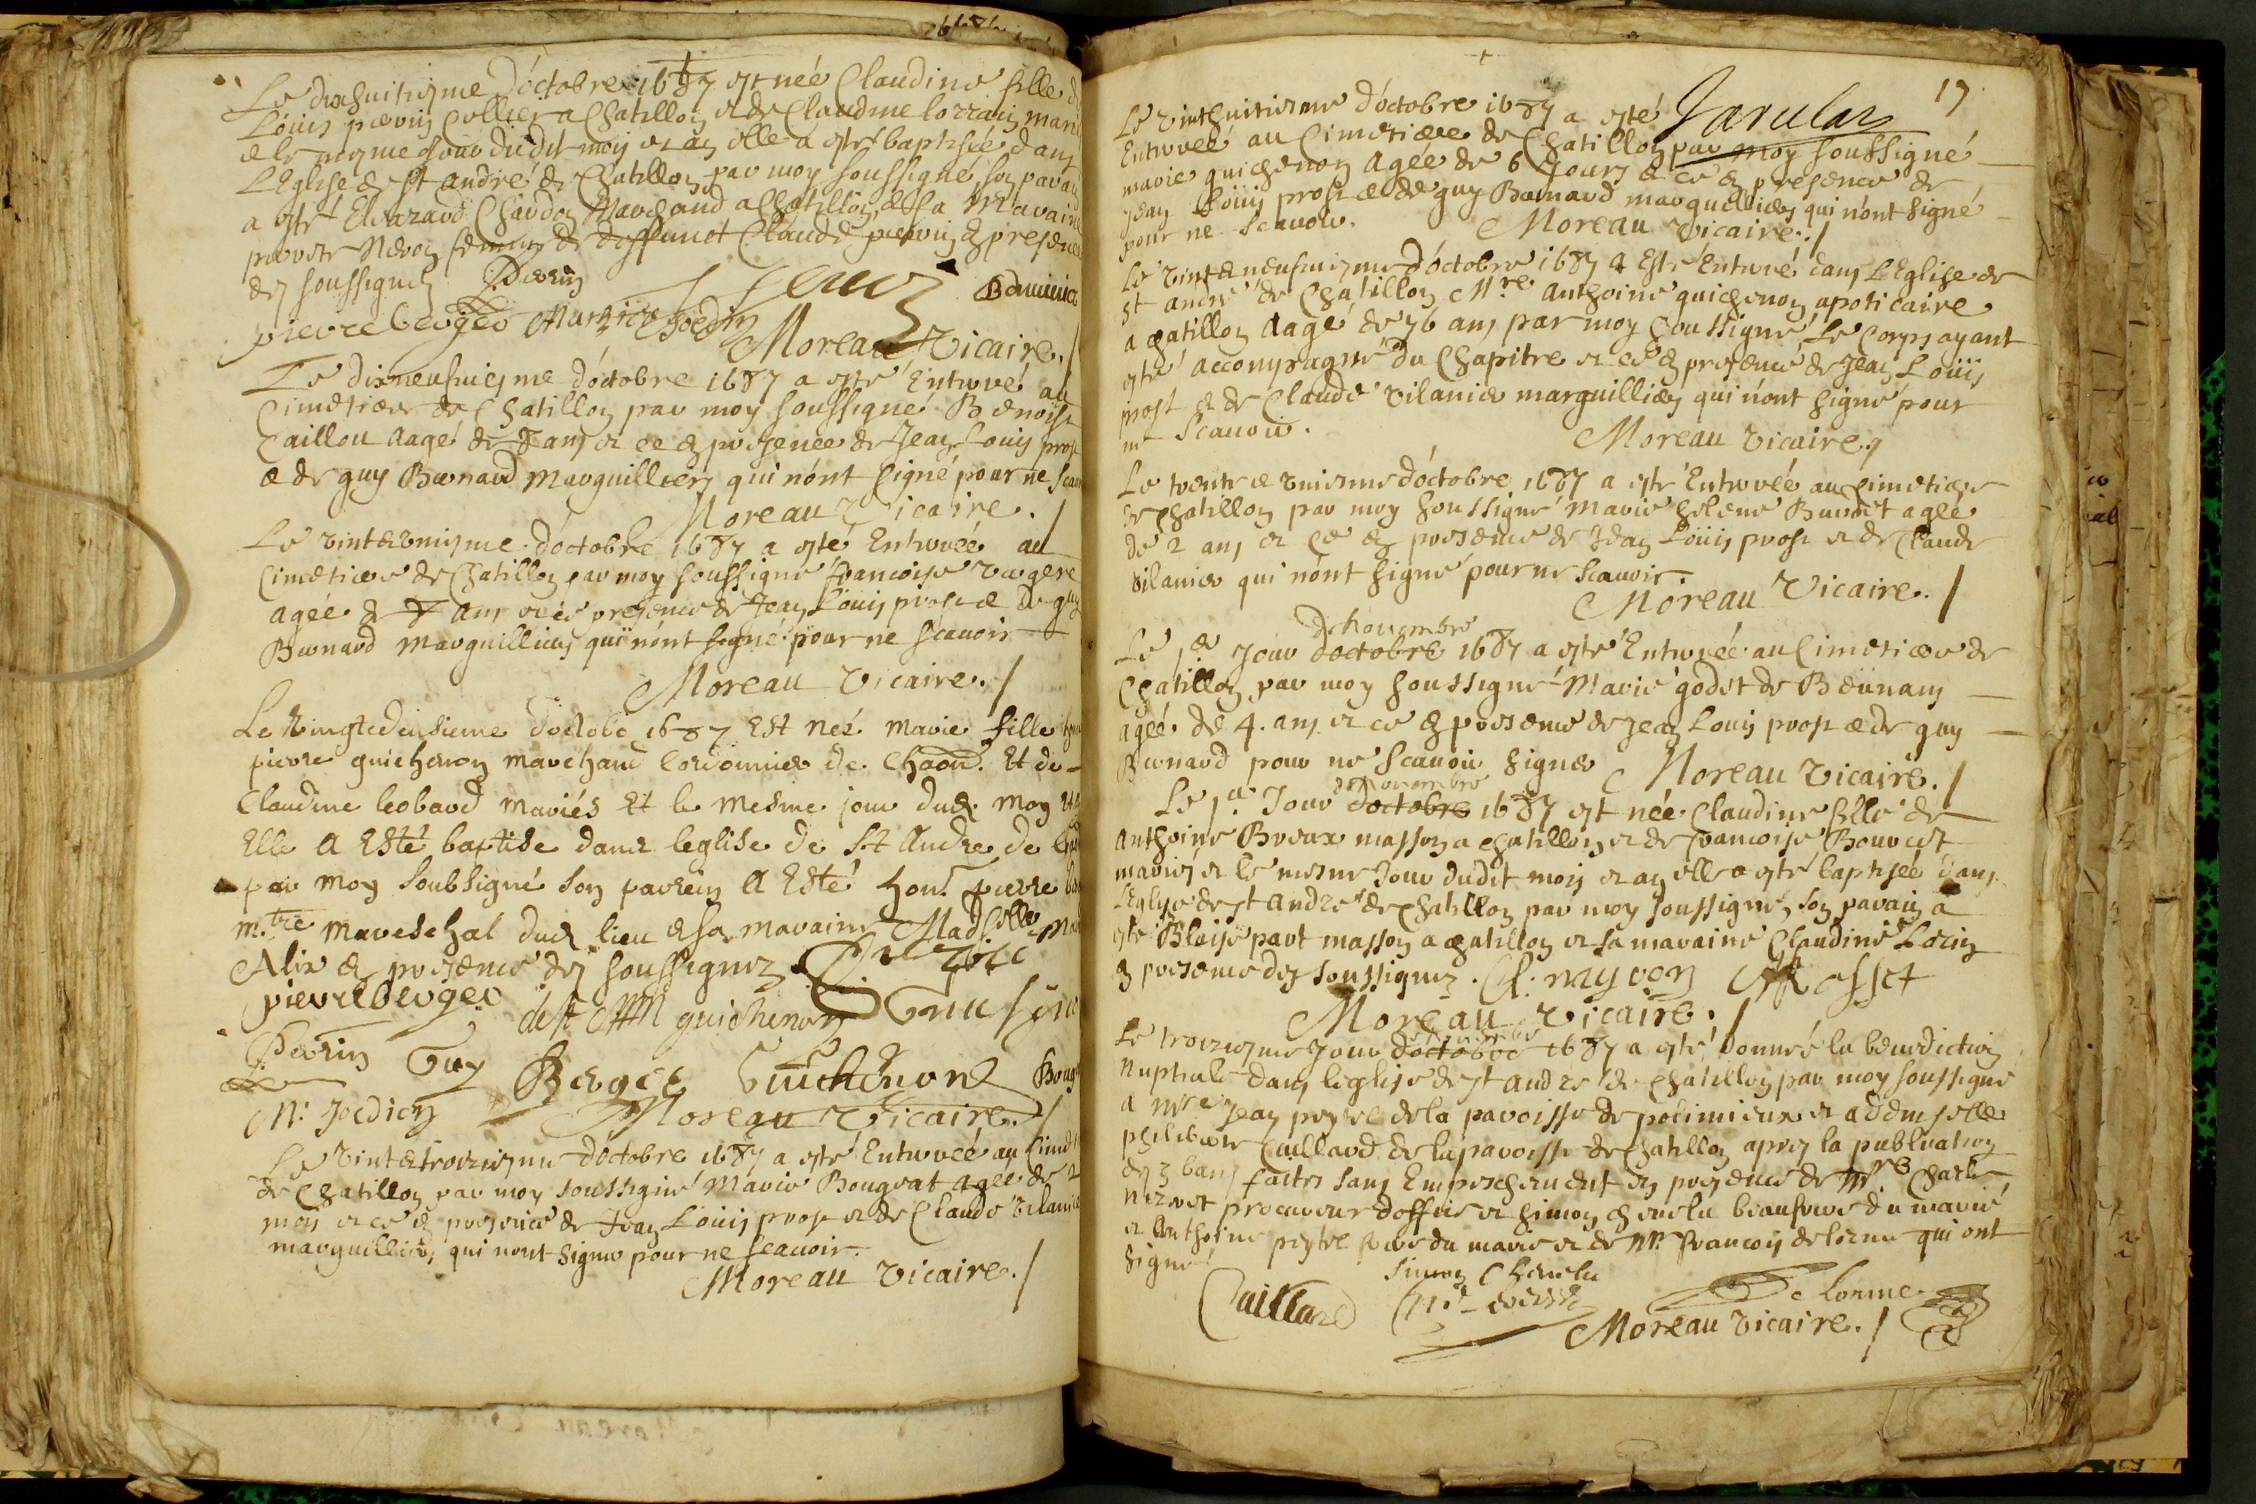 Le dixhuitiesme d'octobre 1687 est neé Claudine fille de
Loüis perrin Collier a Chatillon et de Claudine lorrain mariés
et le mesme Jour dudit mois et an elle a esté baptiseé dans
L'Eglise de st andré de Chatillon par moy soussigné son parain
a esté Chardon Marchand a Chatillon, et sa Maraine
femme de deffunct Claude perrin en presence
des soussignez Perrin
pierre berger Joedin
Moreau Vicaire./
Le dixneufuiesme d'octobre 1687 a esté Enterré au
Cimetiere de Chatillon par moy soussigné Benoist
Caillou aagé de 8 ans et ce en presence de Jean Louis prost
et de guy Bernard Marguilliers qui n'ont signé pour ne scauoir
Moreau Vicaire./
Le vint et vniesme d'octobre 1687 a esté Enterreé au
Cimetiere de Chatillon par moy soussigné francoise
ageé de 8 ans et ce en presence de Jean Loüis prost et de guy
Bernard Marguilliers qui n'ont signé pour ne scauoir
Moreau Vicaire./
Le vingtedeusieme d'octobe 1687 Est neé marie fille
pierre guichenon marchand Cordonnier de Chaon. Et de
Claudine leobard mariés Et le mesme jour dud. moy
Elle A Esté baptisé dans leglise de St Andre de
par moy soubsigné son parrein A Esté hon. pierre
m.tre mareschal dud lieu et sa maraine Mad.selle
Alix en presence des soussignez
pierre berger guichenon
Perrin Guy Berger Guichenon
M. Joedien
Moreau Vicaire./
Le vint et troiziesme d'octobre 1687 a esté Enterreé au
de Chatillon par moy soussigné Marie Bougrat ageé de 2
mois et ce en presence de Jean Loüis prost et de Claude vilanier
marguilliers, qui nont signer pour ne scauoir.
Moreau Vicaire./
17
Le vinthuitiesme d'octobre 1687 a esté
Enterreé au Cimetiere de Chatillon par moy soussigné
marie guichenon Agée de 6 Jours et ce en presence de
Jean Loüis prost et de guy Bernard marguilliers qui n'ont signé
pour ne Scauoir. Moreau Vicaire./
Le vint et neufuiesme d'octobre 1687 a Esté Enterré dans L'Eglise de
st andré de Chatillon M.re anthoine guichenon apoticaire
a chatillon Aagé de 76 ans par moy soussigné, Le Corps ayant
esté accompagné du Chapitre et ce en presence de Jean Loüis
prost et de Claude vilanier marguilliers qui n'ont signé pour
ne Scauoir. Moreau vicaire./
Le trente et vniesme d'octobre 1687 a esté Enterreé au cimetiere
de chatillon par moy soussigné Marie helene Buvdet ageé
de 2 ans et ce en presence de Jean Loüis prost et de Claude
vilanier qui n'ont signé pour ne scauoir.
Moreau Vicaire./
de nouembre
Le 1er Jour doctobre 1687 a esté Enterreé au Cimetiere de
Chatillon par moy soussigné Marie godet de
ageé de 4. ans et ce en presence de Jean Louis prost et de guy
Bernard pour ne Scauoir signer Moreau Vicaire./
de nouembre
Le 1er Jour doctobre 1687 est neé Claudine fille de
anthoine masson a chatillon et de francoise Bouvet
mariés et le mesme Jour dudit mois et an elle a esté baptiseé dans
l'Eglise de st André de chatillon par moy soussigné, son parain a
esté Blaise masson a chatillon et sa maraine Claudine
en presence des soussignez.
Moreau Vicaire./
Le troiziesme Jour doctobre 1687 a esté donneé la benediction
nuptiale dans leglise de st andré de chatillon par moy soussigné
a Mre Jean peytel de la paroisse de polimieux et a demoiselle
philiberte Caillard de la paroisse de chatillon apres la publication
des 3 bans faites sans Empeschement en presence de Mre Charles
procureur d'office et simon cheuelu beaufrere du marié
et Anthoine peytel frere du marie et de Mr. francois delorme qui ont
signé
Simon Cheuelu
Caillard De lorme
Moreau Vicaire./